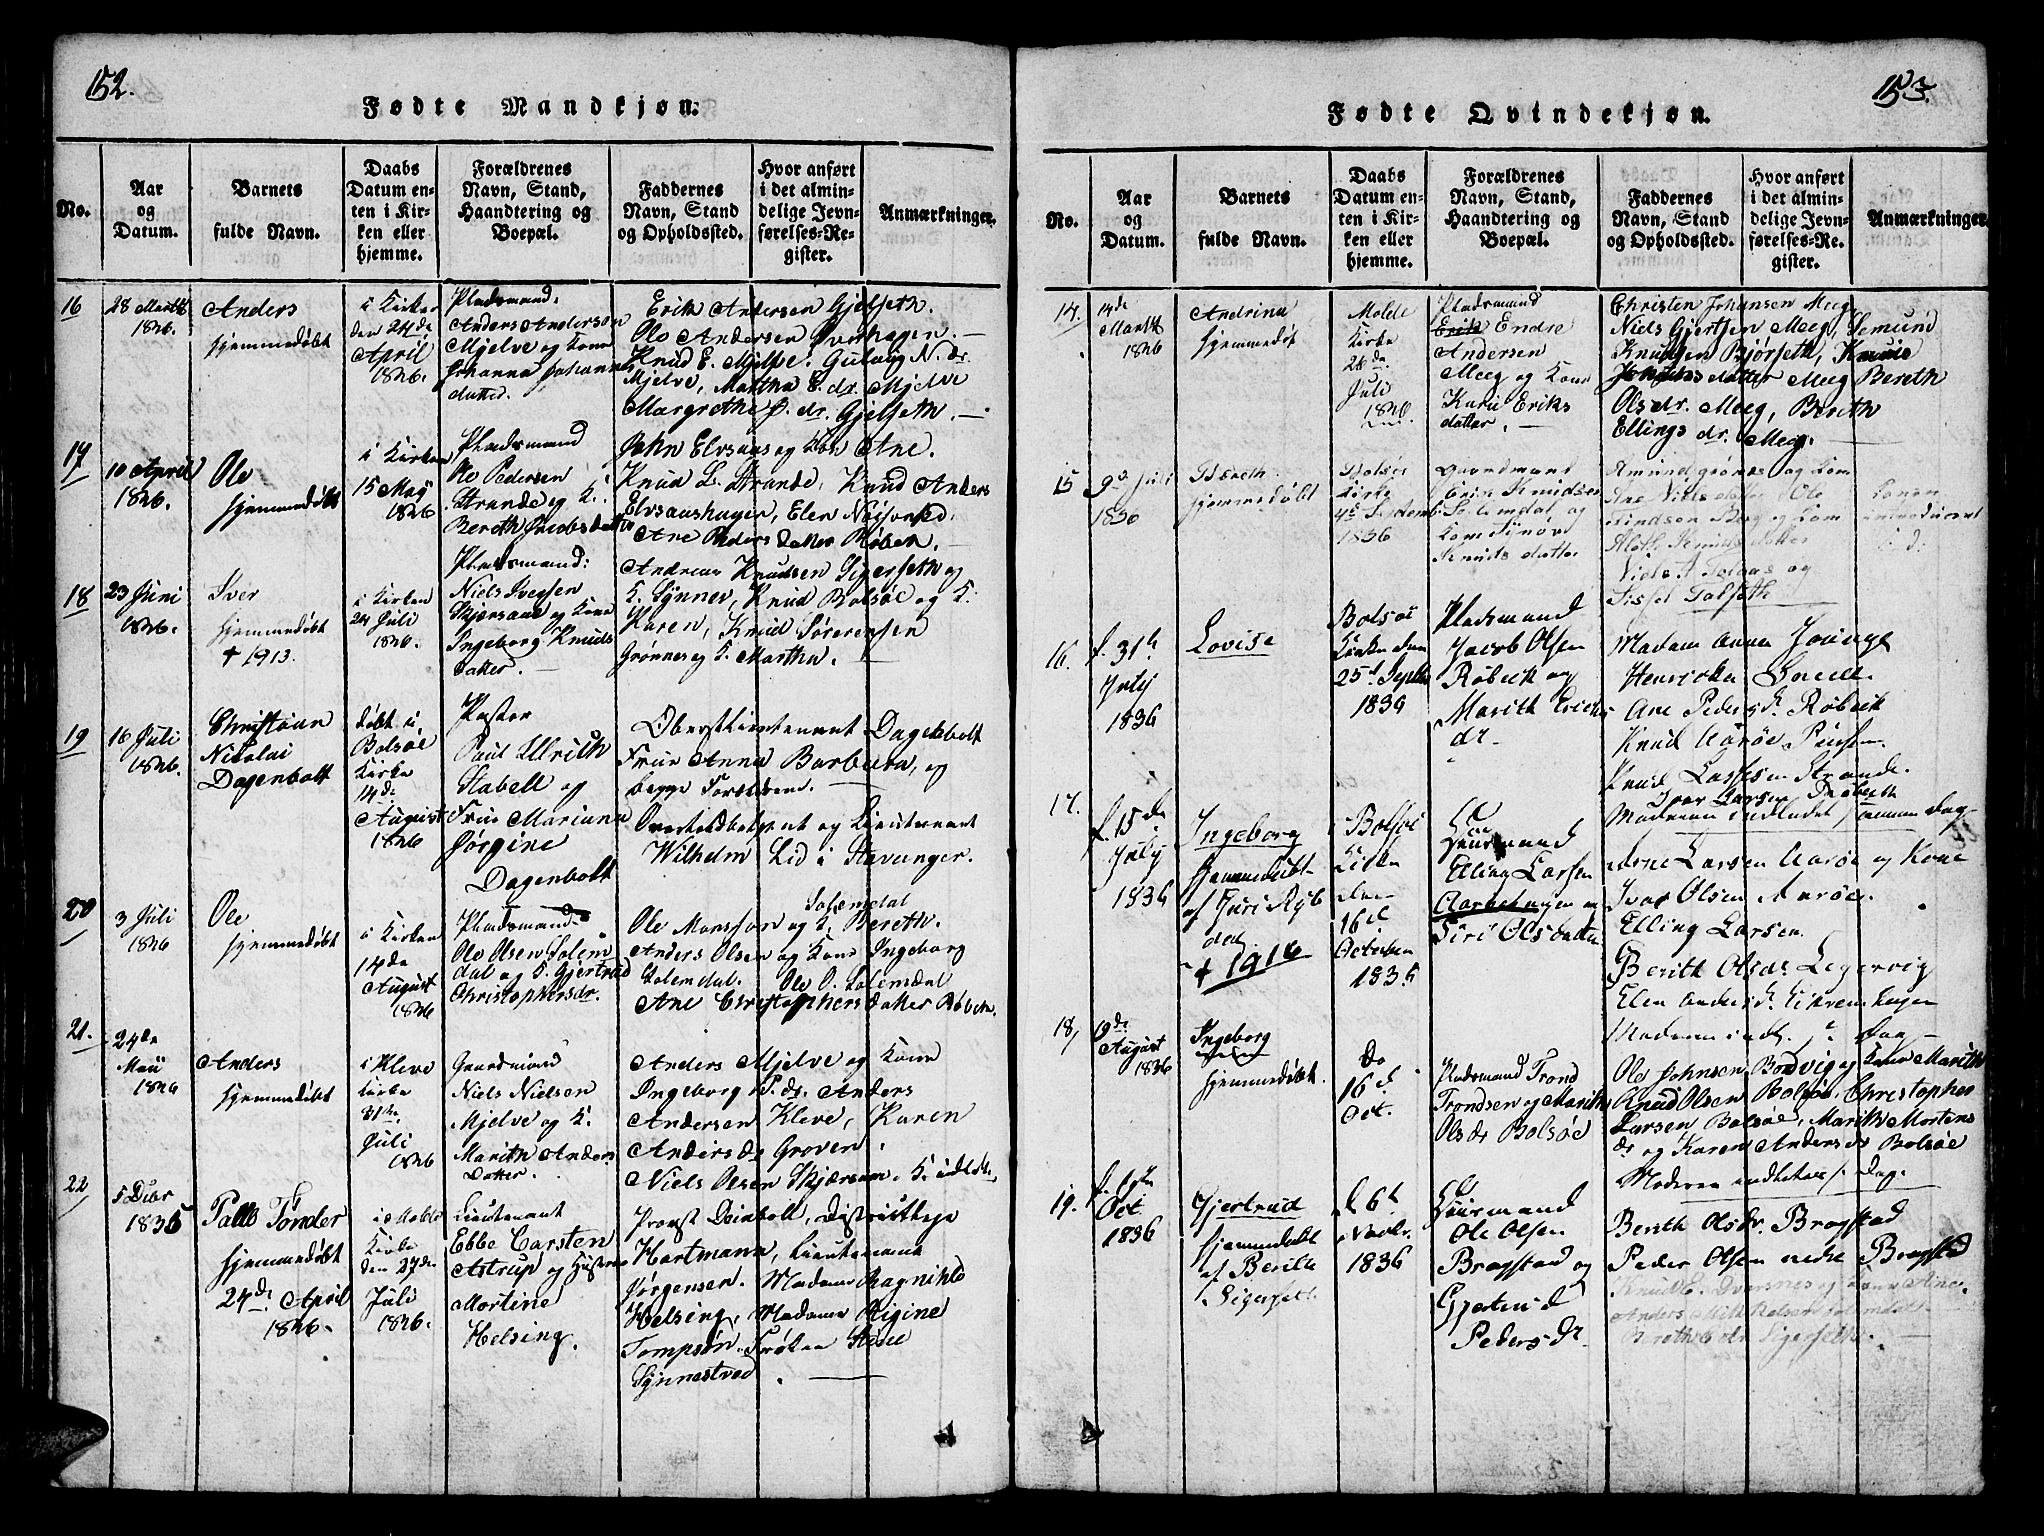 152.
Fødte Mandkjøn.
No.
Aar
og
Datum.
Barnets
fulde Navn.
Daabs
Datum en-
ten i Kir-
ken eller
hjemme.
Forældrenes
Navn, Stand,
Haandtering og
Boepæl.
Faddernes
Navn, Stand
og Opholdssted.
Hvor anført
i det almin-
delige Jevn-
førelses-Re-
gister.
Anmærkninger.
16
28 Martii
1836.
Anders
hjemmedøbt
i Kirken
den 24de
April
1836.
Pladsmand
Anders Andersen
Mjelve og Kone
Johanna Johannes
datter.
Erik Andersen Gjelseth.
Ole Andersen
Knud E. Mjelve. Gulaug N. dr.
Mjelve, Martha E. dr. Mjelve
Margrethe P. dr. Gjelseth.
17
10 April
1836.
Ole
hjemmedøbt
i Kirken
15 Maij
1836
Pladsmand
Ole Pedersen
Strande og K.
Bereth Jacobsdatter
John Elvsaas og Kone Ane.
Knud L. Strande, Knud Anders
Elvsaashagen, Elen
Ane Peders datter Røbek.
18
23 Juni
1836.
Iver
hjemmedøbt
† 1913.
i Kirken
24 Juli
1836.
Pladsmand:
Niels Iversen
Skjersaae og Kone
Ingeborg Knuds
datter.
Andreas Knudsen Sigerseth og
K. Synnev, Knud Bolsøe og K.
Karen, Knud Sørensen
Grønnes og K. Martha.
19
16 Juli
1836.
Christian
Nicolai
Dagenbolt
døbt i
Bolsøe
Kirke
14de
August
1836
Pastor
Paul Ulrich
Stabell og
Frue Mariane
Jørgine
Dagenbolt
Oberstlieutenant Dagenbolt
Frue Anna Barbara, og
begge Forældrene.
og Lieutenant
Wilhelm Lid i Stavanger.
20
3 Juli
1836
Ole
hjemmedøbt
i Kirken
14de
August
1836
Pladsmand
Ole Olsen Solem
dal og K. Gjertrud
Christophersdr.
Solemdal
Ole Monsson og K. Bereth.
Anders Olsen og Kone Ingeborg
Solemdal. Ole O. Solemdal
Ane Christophers datter Røbek.
21.
24de
Maii
1836
Anders
hjemmedøbt
i Kleve
Kirke
31te
Juli
1836
Gaardmand
Niels Nielsen
Mjelve og K.
Marith Anders
datter.
Anders Mjelve og Kone
Ingeborg P. dr. Anders
Andersen Kleve, Karen
Anders dr Groven.
Niels Olsen Skjersaae. K.
22
5 Dcbr
1835
Palle Tønder
hjemmedøbt
24de April
1836.
i Molde
Kirke
den 27de
Juli
1836.
Lieutenant
Ebbe Carsten
Astrup og Hustrue
Mortine
Helsing.
Provst Deinboll, Districtslæge
Hartmann, Lieutenant
Jørgensen. Madame Ragnihld
Helsing, Madame Rigine
Tompson. Frøken
Synnestved
153.
Fødte Qvindekjøn.
No.
Aar
og
Datum.
Barnets
fulde Navn.
Daabs
Datum en-
ten i Kir-
ken eller
hjemme.
Forældrenes
Navn, Stand,
Haandtering og
Boepæl.
Faddernes
Navn, Stand
og Opholdssted.
Hvor anført
i det almin-
delige Jevn-
førelses-Re-
gister.
Anmærkninger.
14.
14de
Martii
1836
Andrina
hjemmedøbt
Molde
Kirke
26de
Juli
1836
Pladsmand
Erik Endre
Andersen
Meeg og Kone
Kari Eriks
datter.
Christen Johansen Meeg
Niels Gjertsen Meeg, Semund
Knudsen Bjørseth, Knud
Johannesdatter Meeg Bereth
Ols dr. Meeg, Bereth
Ellings dr. Meeg.
15
9de Juli
1836
Bereth
hjemmedøbt
Bolsøe
Kirke
4de Septemb
1836
Gaardmand
Erik Knudsen
Solemdal og
Kone Synøve
Knuds datter
Amund Grønnes og Kone
Ane Niels datter Ole
Knudsen Berg og Kone
Knuds datter
Niels
Solseth
16.
f. 31te
July
1836
Lovise
Bolsøe
Kirke den
25de Septbr
1836
Pladsmand
Jacob Olsen
Røbeck og
Marith Erichs
dr.
Madam Anna
Henricka
Ane Peders dr. Røbeck
Knud Aarøe
Knud Lassesen Strande.
Ivar Larsen Røbeck
Moderen indledet samme Dag.
17.
f. 15de
July
1836
Ingeborg
hjemmedøbt
af Juri
ded
† 1916
Bolsøe
Kirke
den
16de
October
1836
Huusmand
Elling Larsen
Aarøehagen og
Siri Olsdatter
Arne Larsen Aarøe og Kone
Ivar Olsen Aarøe.
Elling Larsen
Berith Olsdr. Legervig
Elen Anders dr. Eikremshagen
Moderen indl. s. Dag
18,
19de
August
1836
Ingeborg
hjemmedøbt.
Do
16de
Oct.
Pladsmand Trond
Trondsen og Marith
Olsdr Bolsøe
Ole Johnsen Bodvig og Kone Marith
Knud Olsen Bolsøe, Christopher
Larsen Bolsøe, Marith Mortens
dr og Karen Anders dr Bolsøe
Moderen indledet s. Dag.
19.
Oct
1836
Gjertrud
hjemmedøbt
af Berith
Sigerseth.
d. 6te
Novbr.
1836
Huusmand
Ole Olsen
Bragstad og
Gjertrud
Pedersdr.
Berith Olsdr. Bragstad
Peder Olsen nedre Bragstad
Knud og Kone Ane.
Anders Mikkelsen Solemdal
Bereth dr Sigerseth.